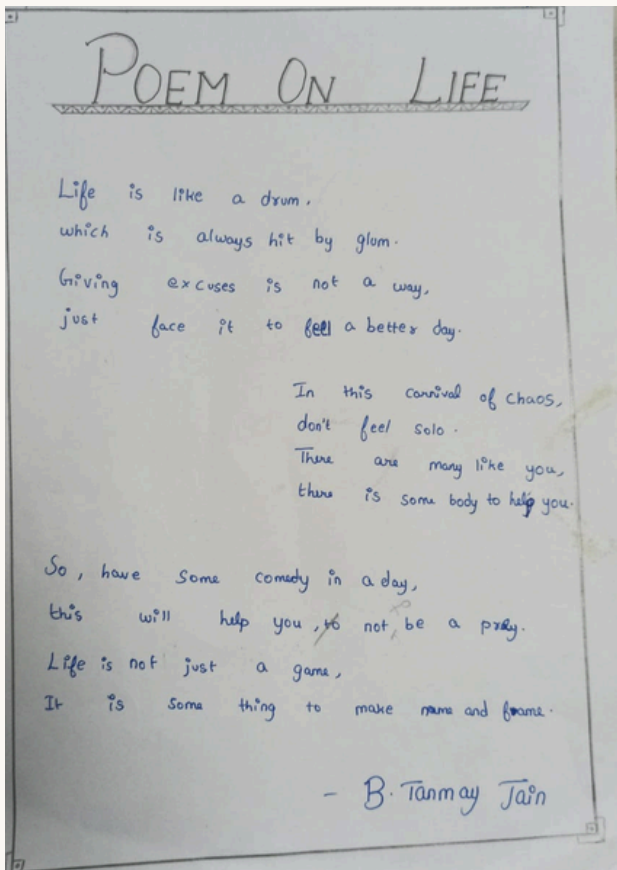 POEM ON LIFE
Life is like a drum.
which is always hit by glum.
Giving excuses is not a way,
just face it to feel a better day.
In this carnival of chaos,
don't feel solo.
There are many like you,
there is some body to help you.
So, have some comedy in a day,
this will help you, not to be a prey.
Life is not just a game,
It is some thing to make name and frame.
- B. Tanmay Jain